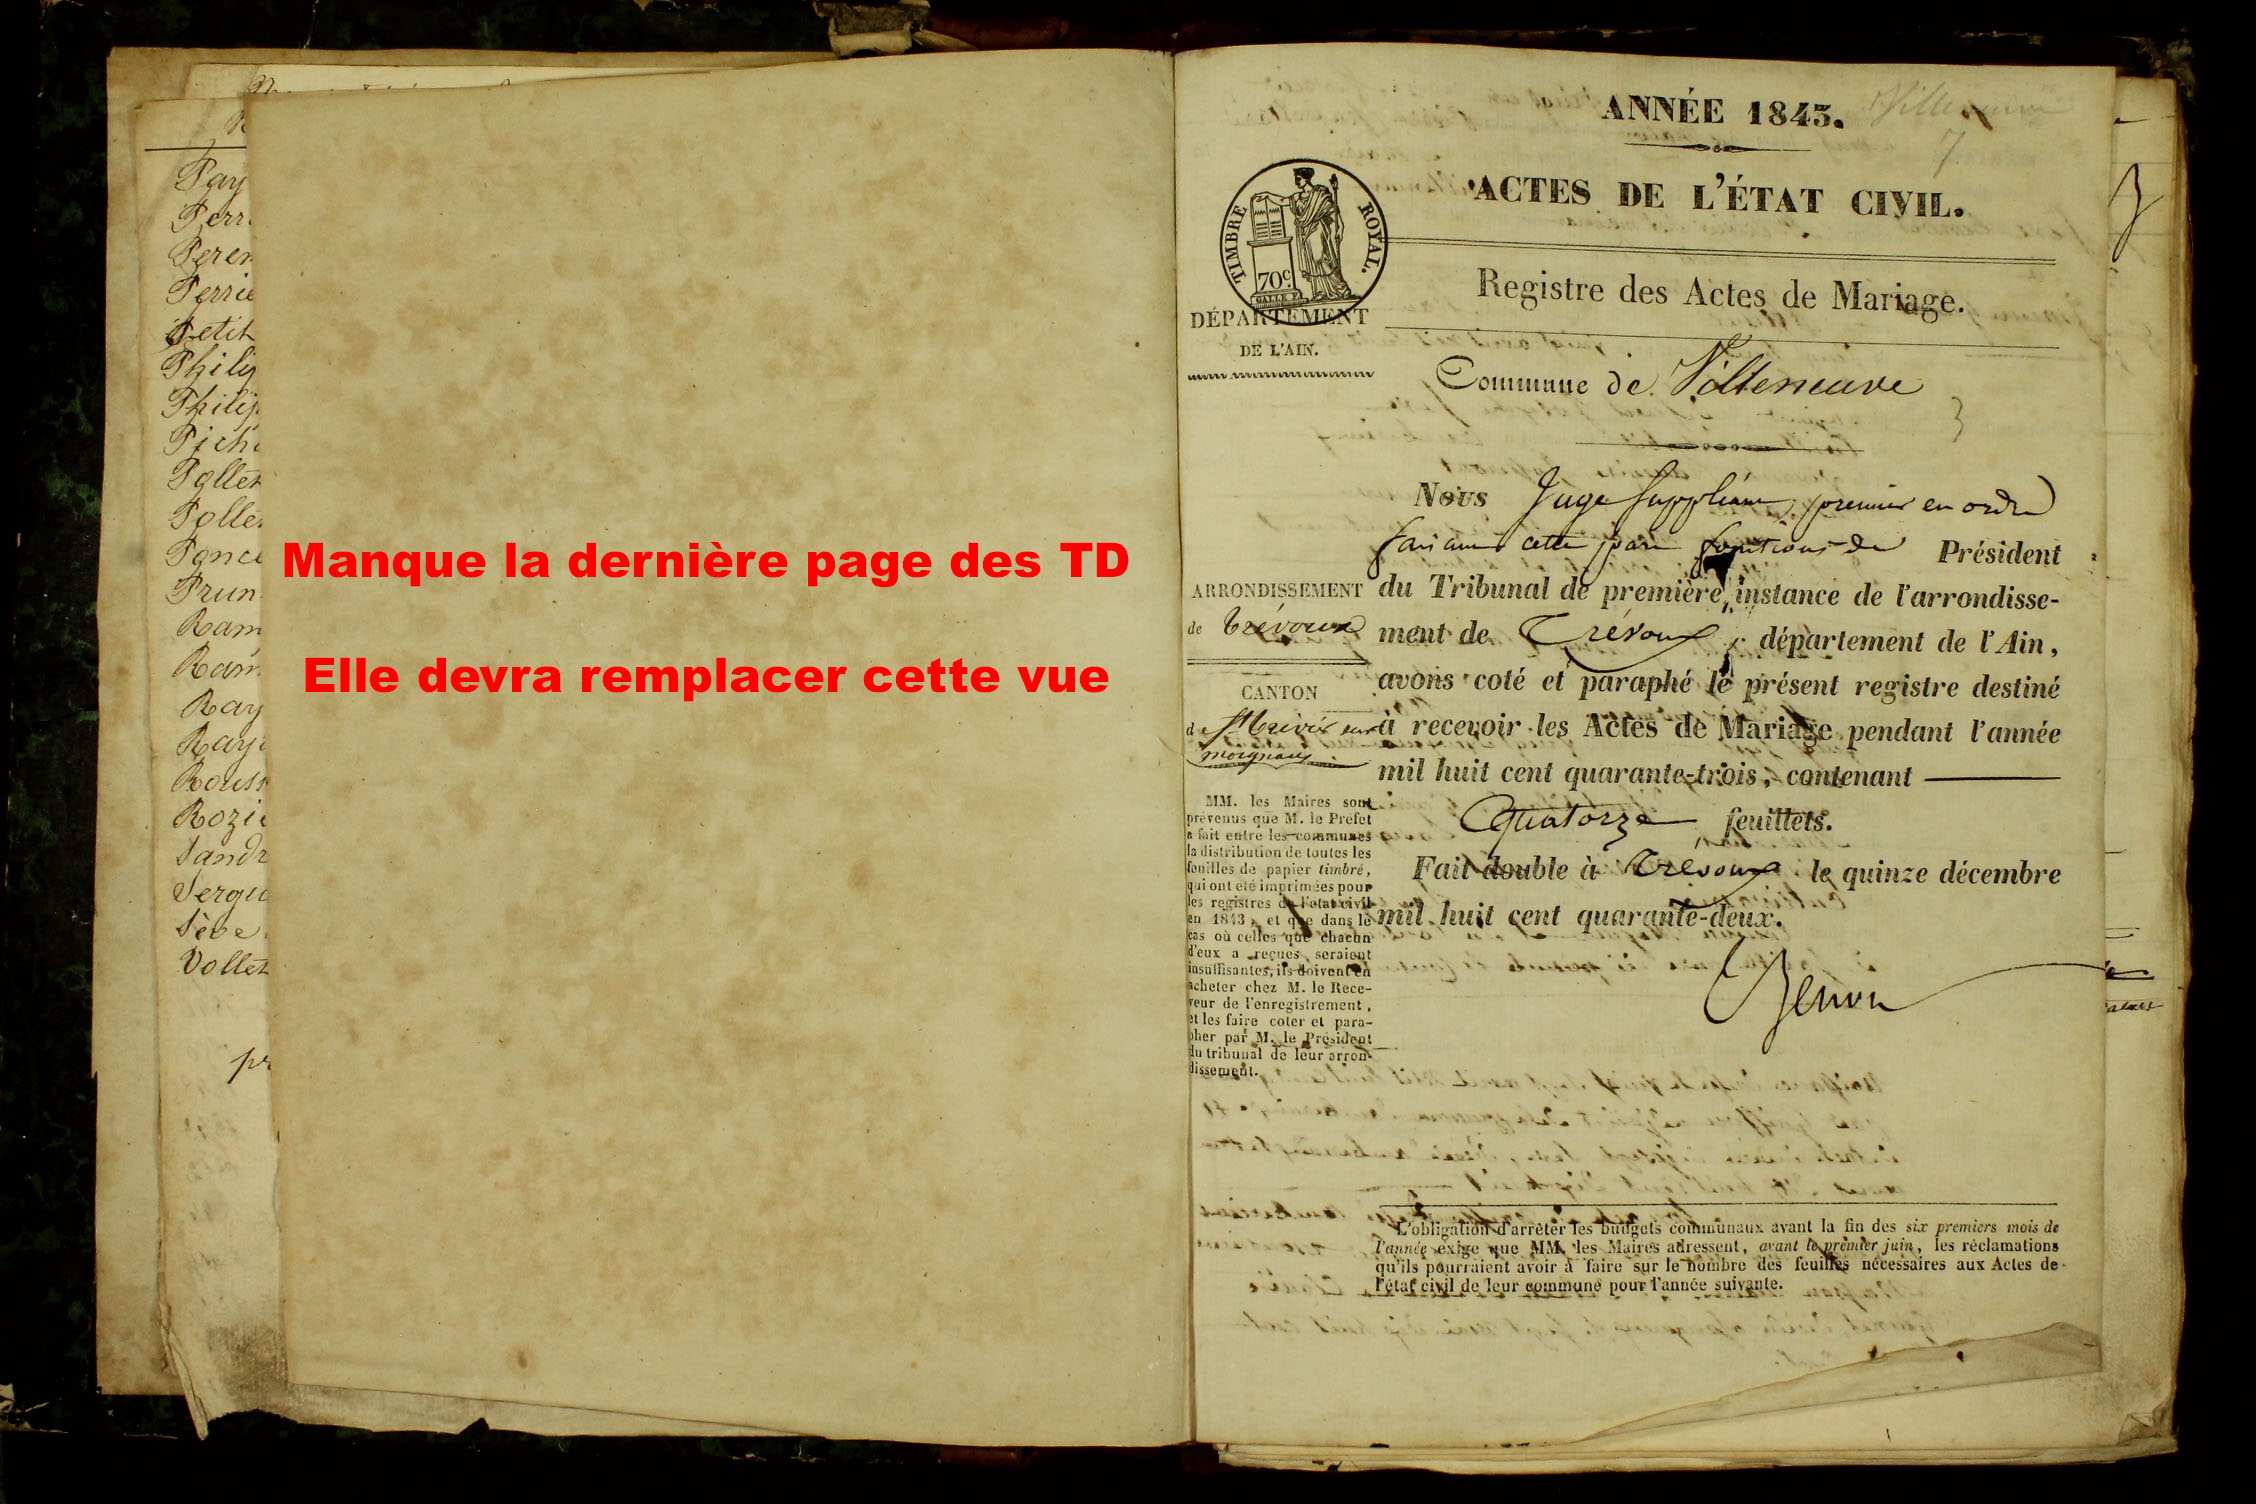 Manque la dernière page des TD
Elle devra remplacer cette vue
Pay
Perr
Peren
Perrie
Petit
Philip
Philip
Picho
Pollet
Pollet
Ponce
Prun
Ram
Ram
Ray
Ray
Rouss
Rozie
Sandr
Sergu
Sève
Vollet
pr
ANNÉE 1843.
Villeneuve
7
ACTES DE L'ÉTAT CIVIL.
TIMBRE ROYAL.
70c
Registre des Actes de Mariage.
DÉPARTEMENT
DE L'AIN.
Commune de Villeneuve
3
Nous Juge Suppléant, premier en ordre
faisant cette part fonctions de Président
du Tribunal de première instance de l'arrondisse-
ment de Trévoux, département de l'Ain,
avons coté et paraphé le présent registre destiné
à recevoir les Actes de Mariage pendant l'année
mil huit cent quarante-trois, contenant
Quatorze feuillets.
Fait double à Trévoux le quinze décembre
mil huit cent quarante-deux.
ARRONDISSEMENT
de Trévoux
CANTON
de St Trivier sur
moignans
MM. les Maires sont
prévenus que M. le Préfet
a fait entre les communes
la distribution de toutes les
feuilles de papier timbré,
qui ont été imprimées pour
les registres de l'état civil
en 1843, et que dans le
cas où celles que chacun
d'eux a reçues seraient
insuffisantes, ils doivent en
acheter chez M. le Rece-
veur de l'enregistrement,
et les faire coter et para-
pher par M. le Président
du tribunal de leur arron-
dissement.
L'obligation d'arrêter les budgets communaux avant la fin des six premiers mois de
l'année exige que MM. les Maires adressent, avant le premier juin, les réclamations
qu'ils pourraient avoir à faire sur le nombre des feuilles nécessaires aux Actes de
l'état civil de leur commune pour l'année suivante.